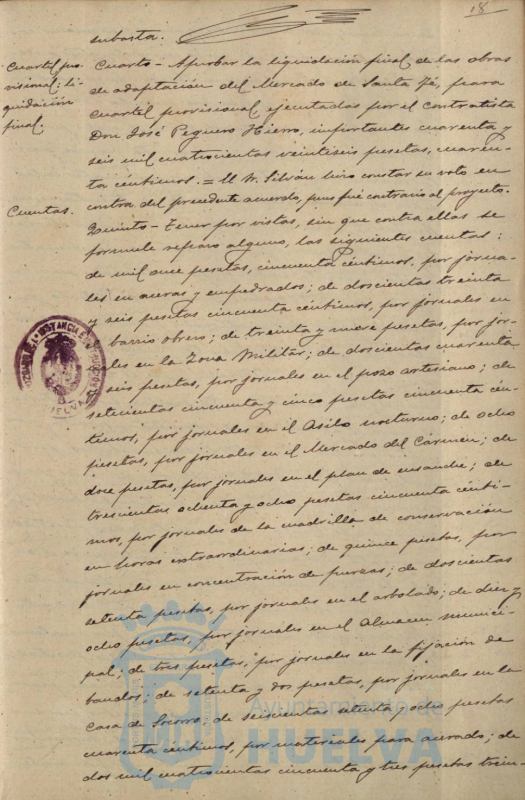 18
subasta.
Cuartel pro-
visional; li-
quidación
final;
Cuarto - Aprobar la liquidación final de las obras
de adaptación del Mercado de Santa Fé, para
cuartel provisional, ejecutadas por el contratista
Don José Peguero Hierro, importantes cuarenta y
seis mil cuatrocientas veintiseis pesetas, cuaren-
ta céntimos. = El Sr. Silván hizo constar su voto en
contra del precedente acuerdo, pues fué contrario al proyecto.
Cuentas.
Quinto - Tener por vistas, sin que contra ellas se
formule reparo alguno, las siguientes cuentas:
de mil once pesetas, cincuenta céntimos, por jorna-
les en aceras y empedrados; de doscientas treinta
y seis pesetas cincuenta céntimos, por jornales en
barrio obrero; de treinta y nueve pesetas, por jor-
nales en la Zona Militar; de doscientas cuarenta
seis pesetas, por jornales en el pozo artesiano; de
setecientas cincuenta y cinco pesetas cincuenta cén-
timos, por jornales en el Asilo nocturno; de ocho
pesetas, por jornales en el Mercado del Carmen; de
doce pesetas, por jornales en el plan de ensanche; de
trescientas ochenta y ocho pesetas cincuenta cénti-
mos, por jornales de la cuadrilla de conservación
en horas extraordinarias; de quince pesetas, por
jornales en concentración de fuerzas; de doscientas
setenta pesetas, por jornales en el arbolado; de diez y
ocho pesetas, por jornales en el Almacen munici-
pal; de tres pesetas, por jornales en la fijación de
bandos; de setenta y dos pesetas, por jornales en la
Casa de Socorro; de seiscientas setenta y ocho pesetas
cuarenta céntimos, por materiales para acerado; de
dos mil cuatrocientas cincuenta y tres pesetas trein-
HUELVA
Ayuntamiento de
HUELVA